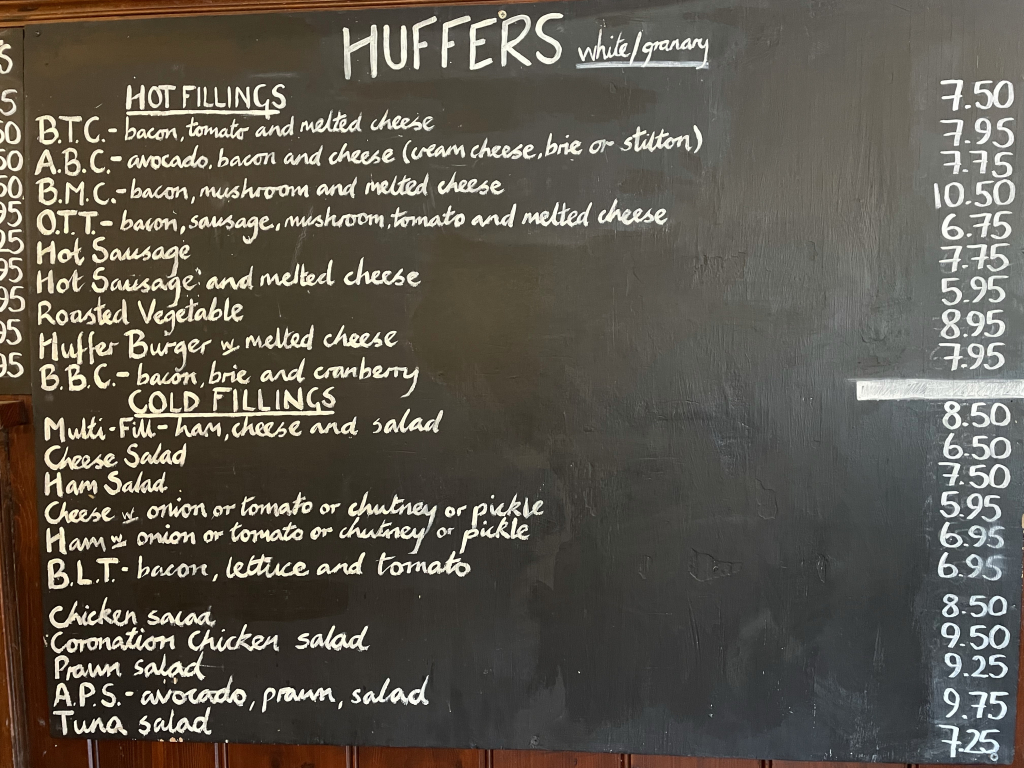 HUFFERS white/granary
HOT FILLINGS
B.T.C. - bacon, tomato and melted cheese 7.50
A.B.C. - avocado, bacon and cheese (cream cheese, brie or stilton) 7.95
B.M.C. - bacon, mushroom and melted cheese 7.75
O.T.T. - bacon, sausage, mushroom, tomato and melted cheese 10.50
Hot Sausage 6.75
Hot Sausage and melted cheese 7.75
Roasted Vegetable 5.95
Huffer Burger w melted cheese 8.95
B.B.C. - bacon, brie and cranberry 7.95
COLD FILLINGS
Multi-Fill - ham, cheese and salad 8.50
Cheese Salad 6.50
Ham Salad 7.50
Cheese w onion or tomato or chutney or pickle 5.95
Ham w onion or tomato or chutney or pickle 6.95
B.L.T. - bacon, lettuce and tomato 6.95
Chicken salad 8.50
Coronation Chicken salad 9.50
Prawn salad 9.25
A.P.S. - avocado, prawn, salad 9.75
Tuna salad 7.25